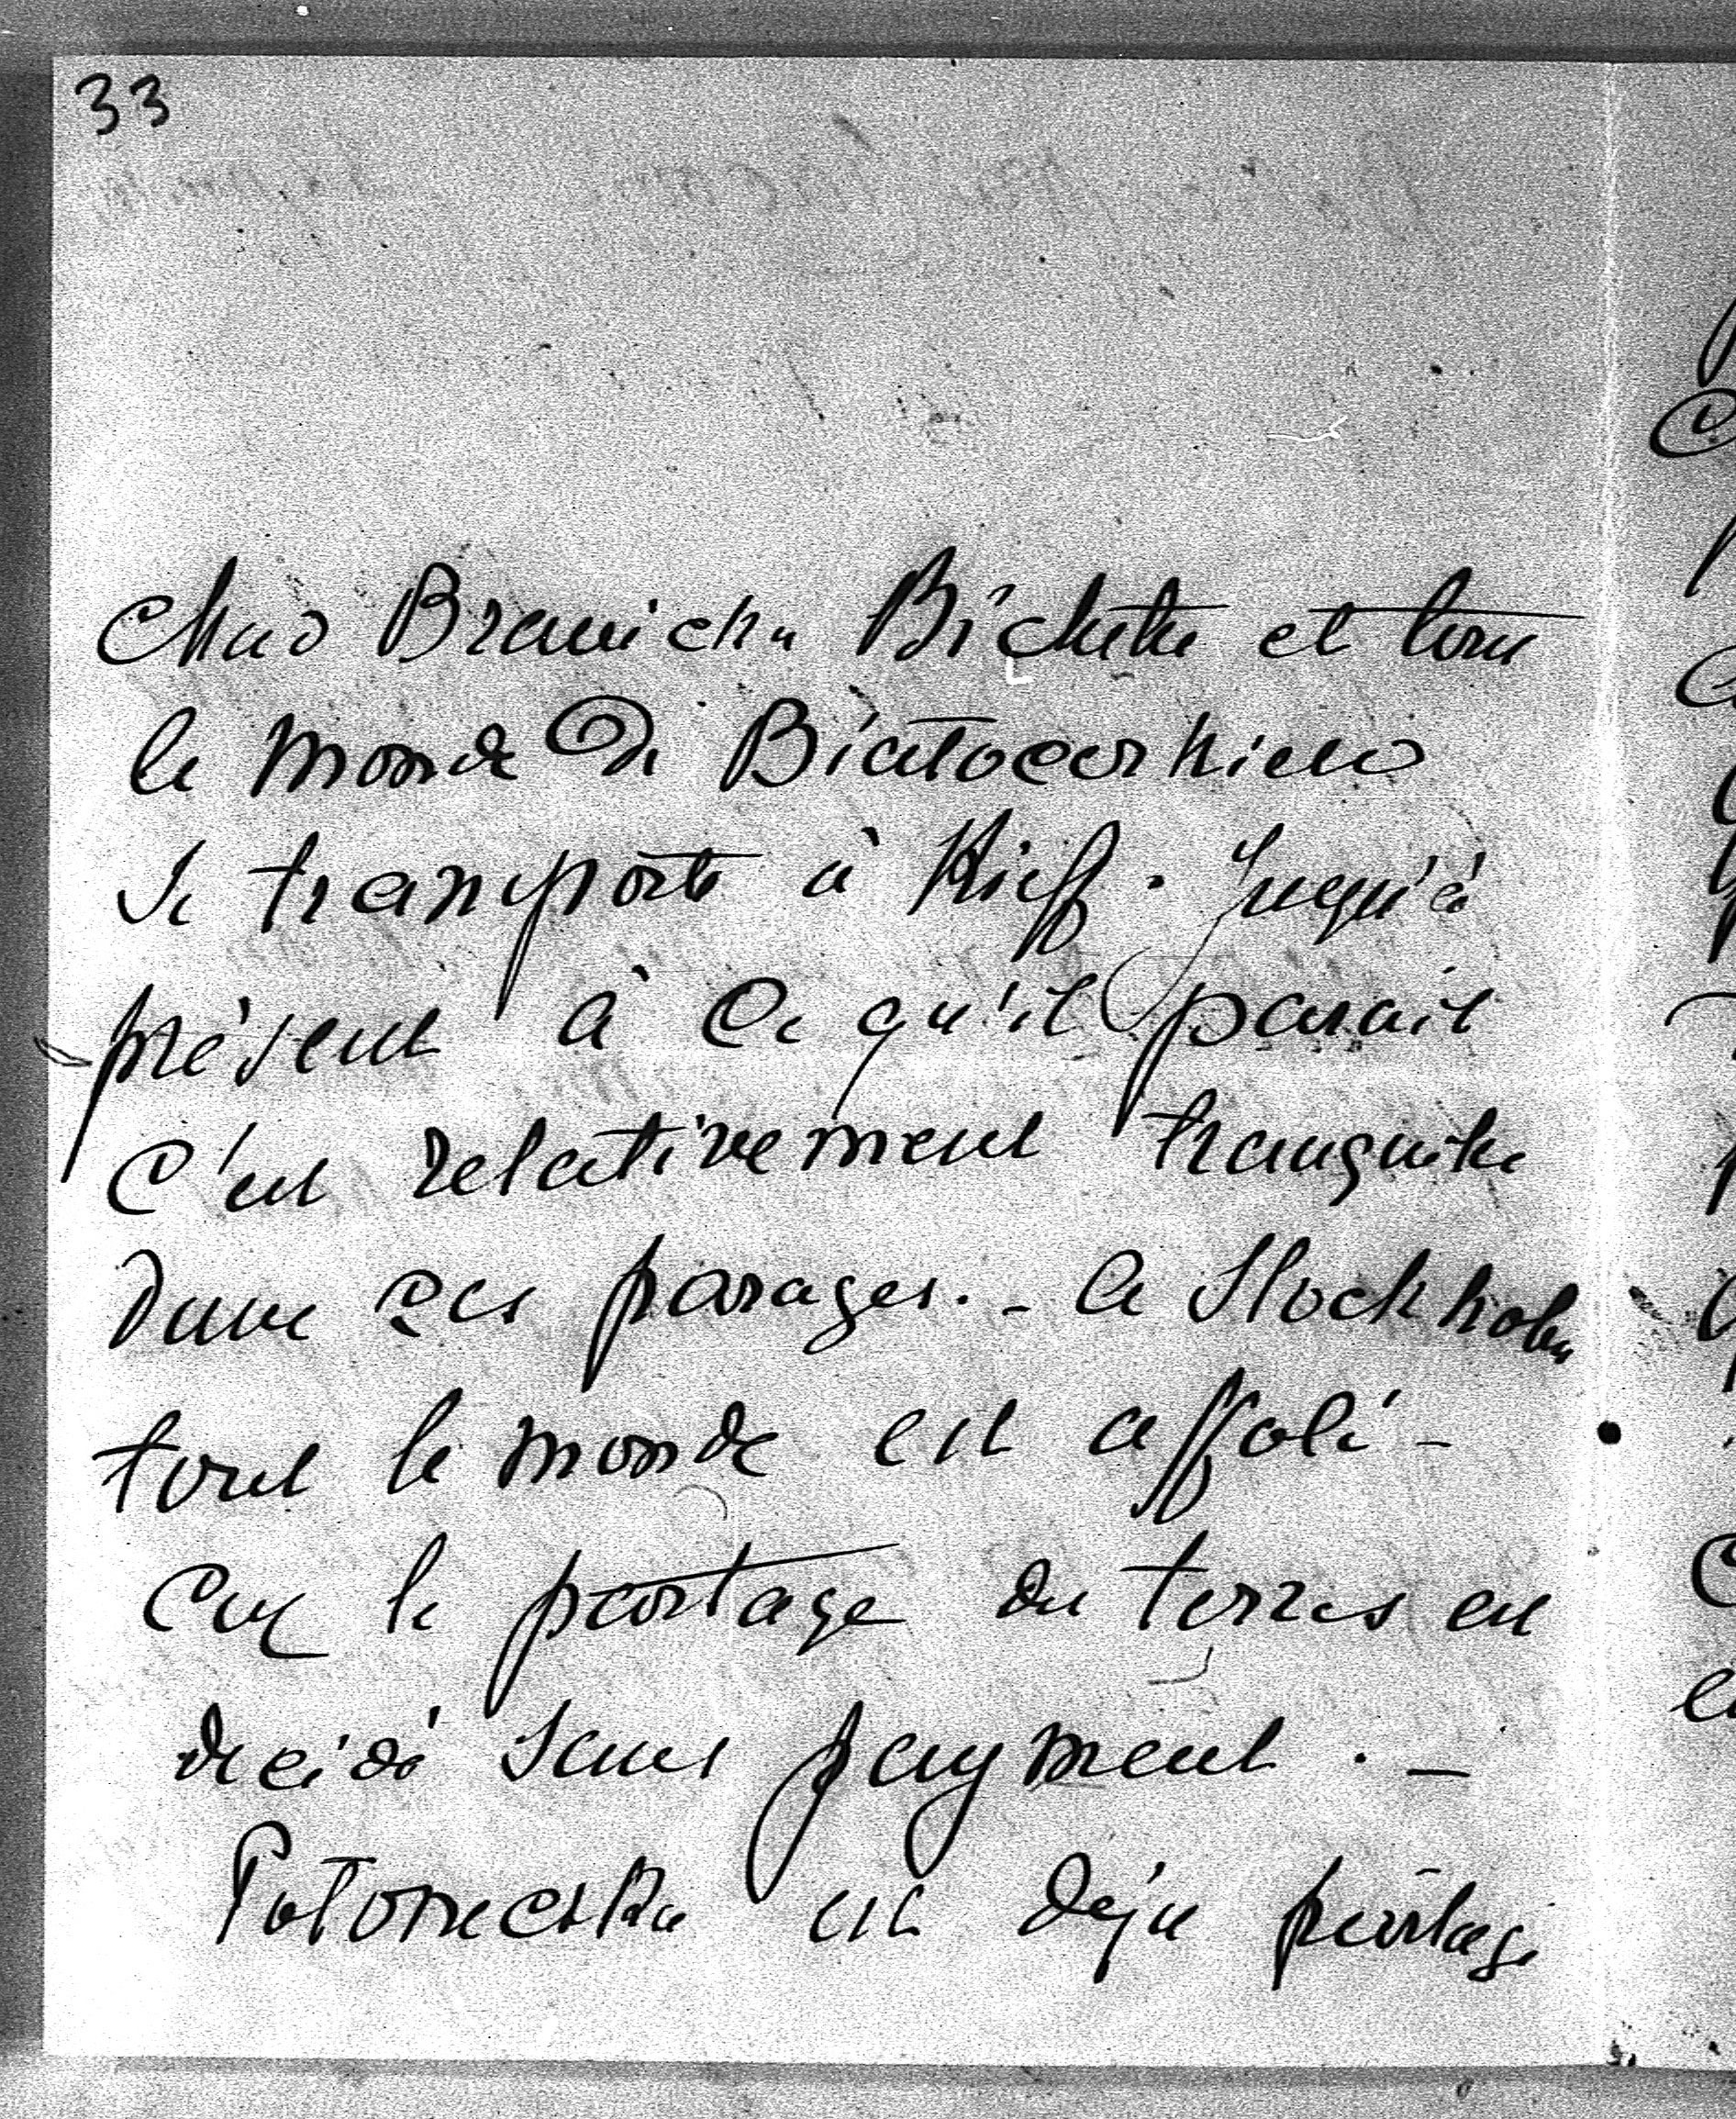 33
Mad Branicka Bichette et tout
le monde de Białocerkiew
se transporte à Kieff. Jusqu'à
présent à ce qu'il parait
c'est relativement tranquille
dans ces parages. - A Stockholm
tout le monde est affolé -
car le partage des terres est
décidé sans payment. -
est déjà partagé